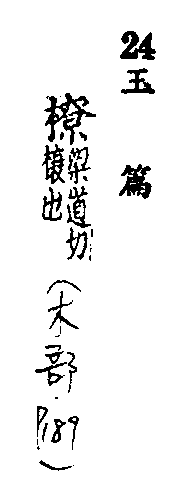 24玉篇
橑梁道切榱也(木部P189)